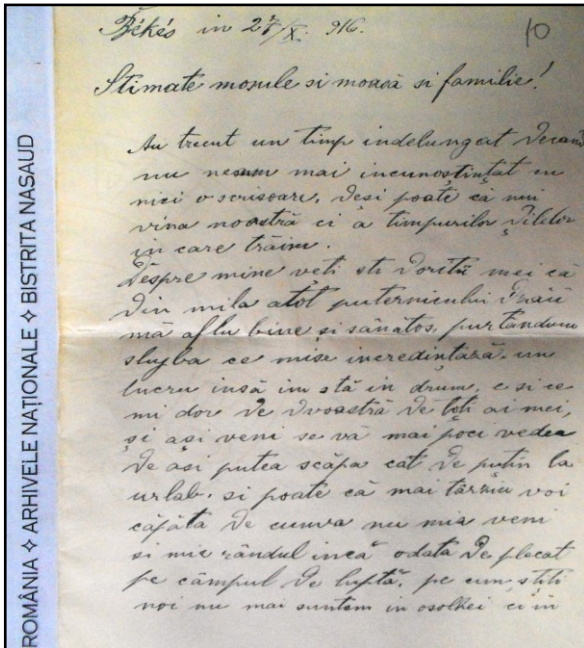 ROMÂNIA ✧ ARHIVELE NAȚIONALE ✧ BISTRITA NASAUD
Békés in 27/X. 916.
10
Stimate moșule si moașă si familie!
Au trecut un timp indelungat decand
nu nesam mai incunostintat cu
nici o scrisoare, desi poate că nui
vina noastră ci a timpurilor zilelor
in care trăim.
Despre mine veti sti doritii mei că
din mila atot puternicului
mă aflu bine si sănătos, purtândumi
slujba ce misă incredintază, un
lucru insă im stă in drum, e si ce
mi dor de dvoastră de toti ai mei,
și ași veni se vă mai poci vedea
de ași putea scăpa cât de putin la
urlab. si poate că mai târziu voi
căpăta de cumva nu mia veni
si mie rândul incă odata de plecat
pe câmpul de luptă, pe cum știti
noi nu mai suntem in ci in